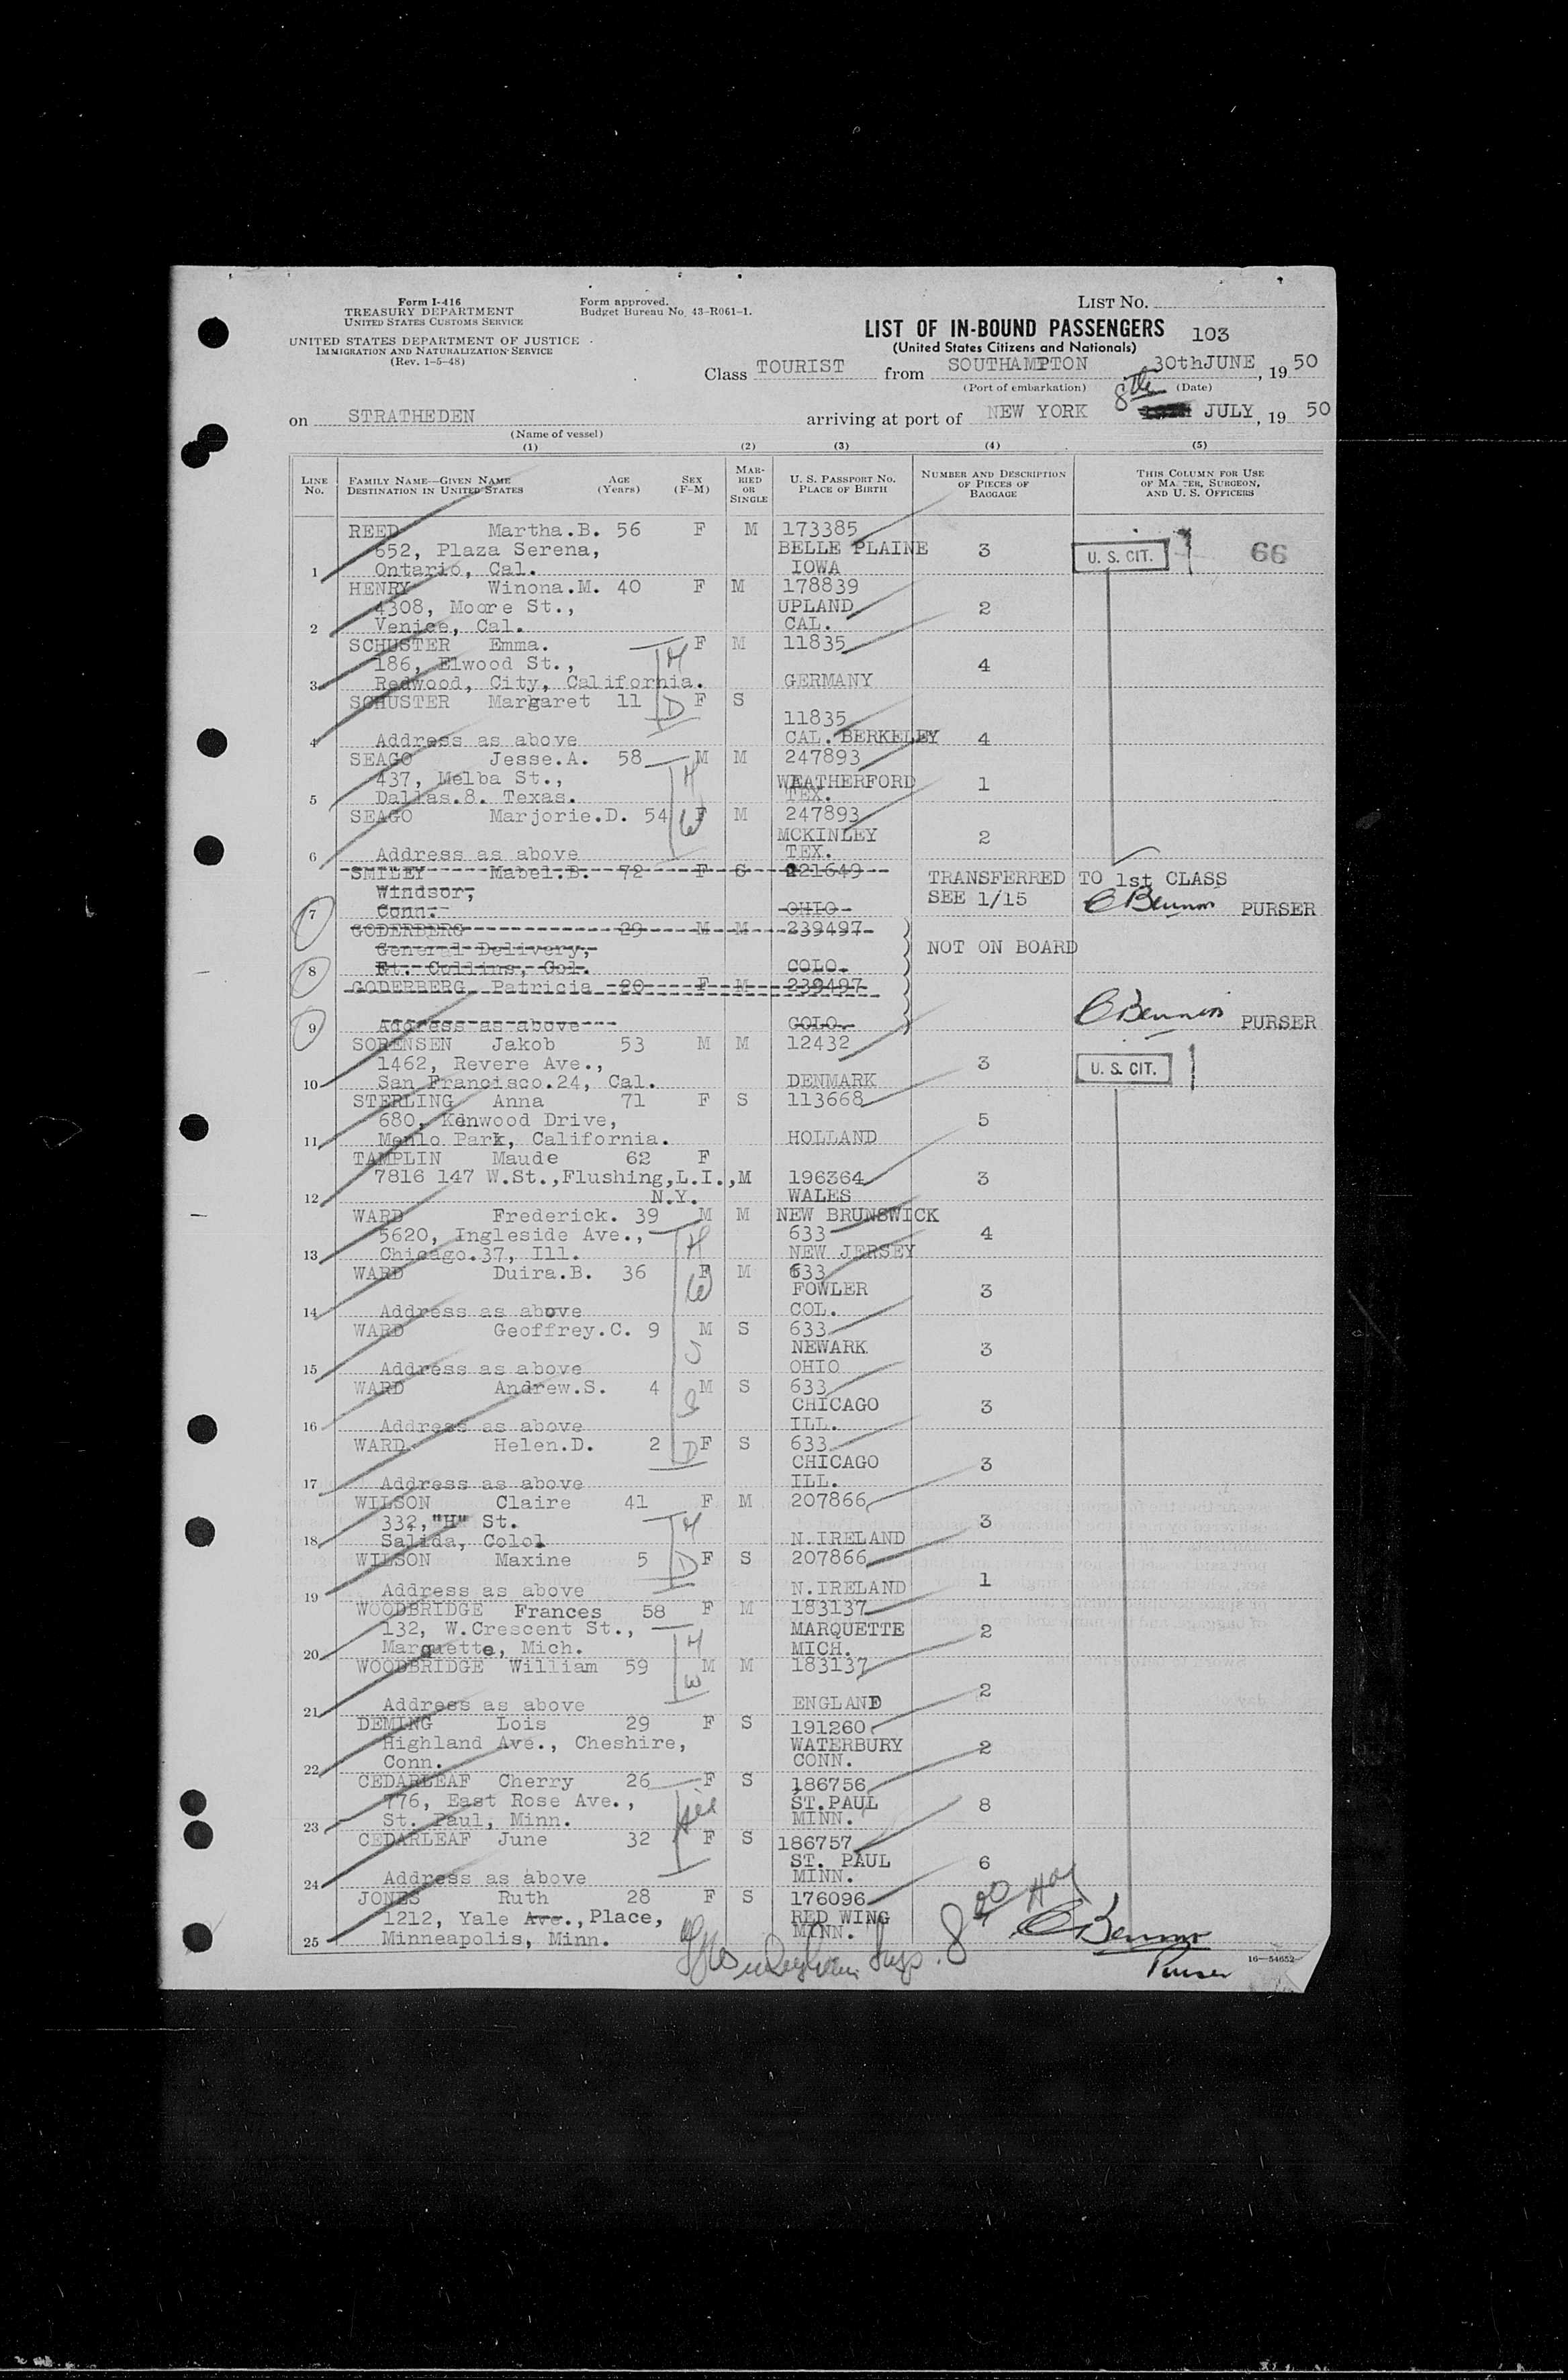 Form I-416
TREASURY DEPARTMENT
UNITED STATES CUSTOMS SERVICE
UNITED STATES DEPARTMENT OF JUSTICE
IMMIGRATION AND NATURALIZATION SERVICE
(Rev. 1-5-48)
Form approved.
Budget Bureau No. 43-R061-1.
LIST No.
LIST OF IN-BOUND PASSENGERS 103
(United States Citizens and Nationals)
Class TOURIST from SOUTHAMPTON 30thJUNE, 1950
(Port of embarkation) (Date)
on STRATHEDEN arriving at port of NEW YORK 8th JULY, 1950
(Name of vessel)
(1) (2) (3) (4) (5)
LINE No. FAMILY NAME—GIVEN NAME DESTINATION IN UNITED STATES AGE (Years) SEX (F-M) MARRIED OR SINGLE U. S. PASSPORT NO. PLACE OF BIRTH NUMBER AND DESCRIPTION OF PIECES OF BAGGAGE THIS COLUMN FOR USE OF MASTER, SURGEON, AND U. S. OFFICERS
REED Martha.B. 56 F M 173385
652, Plaza Serena, BELLE PLAINE 3 U. S. CIT. 66
1 Ontario, Cal. IOWA
HENRY Winona.M. 40 F M 178839
4308, Moore St., UPLAND 2
2 Venice, Cal. CAL.
SCHUSTER Emma. F M 11835
186, Elwood St., H 4
3 Redwood, City, California. GERMANY
SCHUSTER Margaret 11 D F S
11835
4 Address as above CAL. BERKELEY 4
SEAGO Jesse.A. 58 M M 247893
437, Melba St., H WEATHERFORD 1
5 Dallas.8. Texas. TEX.
SEAGO Marjorie.D. 54 F M 247893
W MCKINLEY 2
6 Address as above TEX.
SMILEY Mabel.B. 72 F S 221649 TRANSFERRED TO 1st CLASS
Windsor, SEE 1/15
7 Conn. OHIO PURSER
GODERBERG 29 M M 239497
General Delivery, NOT ON BOARD
8 Ft. Collins, Col. COLO.
GODERBERG Patricia 20 F M 239497
9 Address as above COLO. PURSER
SORENSEN Jakob 53 M M 12432
1462, Revere Ave., 3 U. S. CIT.
10 San Francisco.24, Cal. DENMARK
STERLING Anna 71 F S 113668
680, Kenwood Drive, 5
11 Menlo Park, California. HOLLAND
TAMPLIN Maude 62 F
7816 147 W.St.,Flushing,L.I., M 196364 3
12 N.Y. WALES
WARD Frederick. 39 M M NEW BRUNSWICK
5620, Ingleside Ave., H 633 4
13 Chicago.37, Ill. NEW JERSEY
WARD Duira.B. 36 F M 633
W FOWLER 3
14 Address as above COL.
WARD Geoffrey.C. 9 M S 633
S NEWARK 3
15 Address as above OHIO
WARD Andrew.S. 4 M S 633
S CHICAGO 3
16 Address as above ILL.
WARD Helen.D. 2 D F S 633
CHICAGO 3
17 Address as above ILL.
WILSON Claire 41 F M 207866
332,"H" St. H 3
18 Salida, Colo. N.IRELAND
WILSON Maxine 5 D F S 207866
19 Address as above N.IRELAND 1
WOODBRIDGE Frances 58 F M 183137
132, W.Crescent St., MARQUETTE 2
20 Marquette, Mich. H MICH.
WOODBRIDGE William 59 M M 183137
W 2
21 Address as above ENGLAND
DEMING Lois 29 F S 191260
Highland Ave., Cheshire, WATERBURY 2
22 Conn. CONN.
CEDARLEAF Cherry 26 F S 186756
776, East Rose Ave., ST.PAUL 8
23 St. Paul, Minn. MINN.
CEDARLEAF June 32 F S 186757
ST. PAUL 6
24 Address as above MINN.
JONES Ruth 28 F S 176096
1212, Yale Ave., Place, RED WING
25 Minneapolis, Minn. MINN.
Purser
16—54652